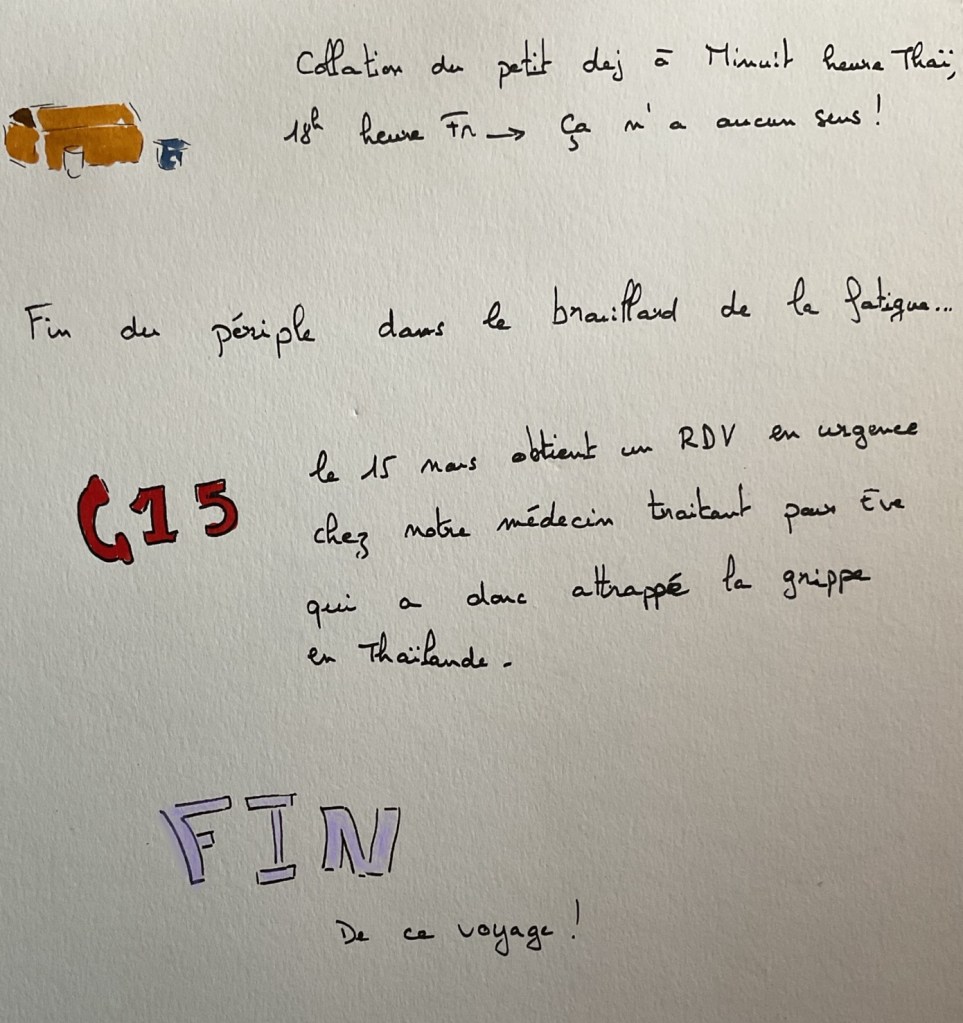 Collation du petit dej à Minuit heure Thaï,
18h heure Fr → Ça n'a aucun sens !
Fin du périple dans le brouillard de la fatigue...
15
le 15 nous obtient un RDV en urgence
chez notre médecin traitant pour Eve
qui a donc attrappé la grippe
en Thaïlande.
FIN
De ce voyage !